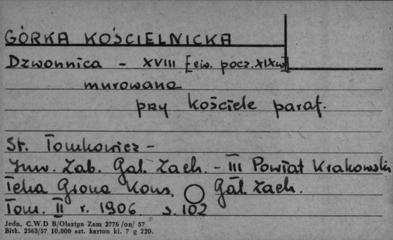 GÓRKA KOŚCIELNICKA
Dzwonnica - XVIII [ew. pocz. XIXw]
murowana
przy kościele paraf.
St. Tomkowicz -
Inw. Zab. Gal. Zach. - III Powiat Krakowski
Teka Grona Kons. Gal. Zach.
Tom. II r. 1906 s. 102
Jedn. C.W.D B/Olsztyn Zam 2776 /on/ 57
Bltk. 2563/57 10.000 szt. karton kl. 7 g 220.